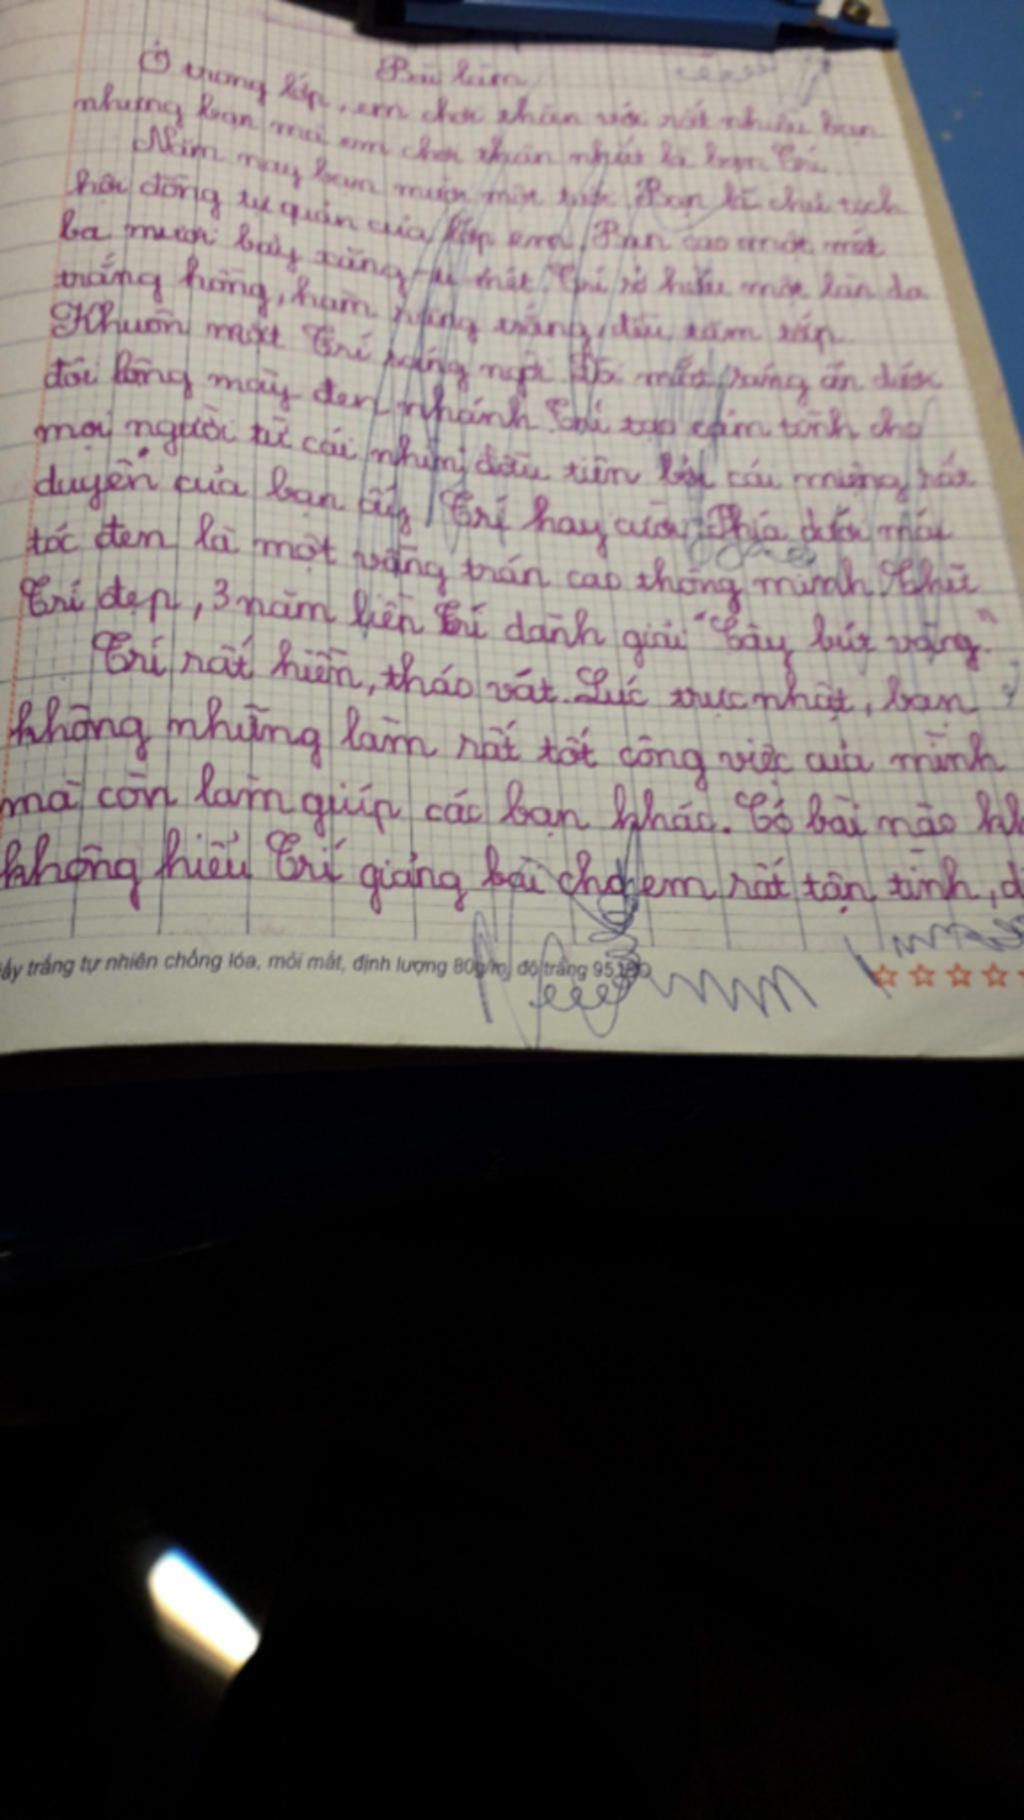 Bài làm
Ở trong lớp, em chơi thân với rất nhiều bạn
nhưng bạn mà em chơi thân nhất là bạn Trí.
Năm nay bạn mười một tuổi. Bạn là chủ tịch
hội đồng tự quản của lớp em. Bạn cao một mét
ba mươi bảy xăng-ti-mét. Trí sở hữu một làn da
trắng hồng, hàm răng trắng, đều tăm tắp.
Khuôn mặt Trí sáng ngời. Đôi mắt sáng ẩn dưới
đôi lông mày đen nhánh. Trí tạo cảm tình cho
mọi người từ cái nhìn đầu tiên bởi cái miệng rất
duyên của bạn ấy. Trí hay cười. Phía dưới mái
tóc đen là một vầng trán cao thông minh. Chữ
Trí đẹp, 3 năm liền Trí dành giải "Cây bút vàng".
Trí rất hiền, tháo vát. Lúc trực nhật, bạn
không những làm rất tốt công việc của mình
mà còn làm giúp các bạn khác. Có bài nào
không hiểu Trí giảng bài cho em rất tận tình,
giấy trắng tự nhiên chống lóa, mỏi mắt, định lượng 80g/m, độ trắng 95